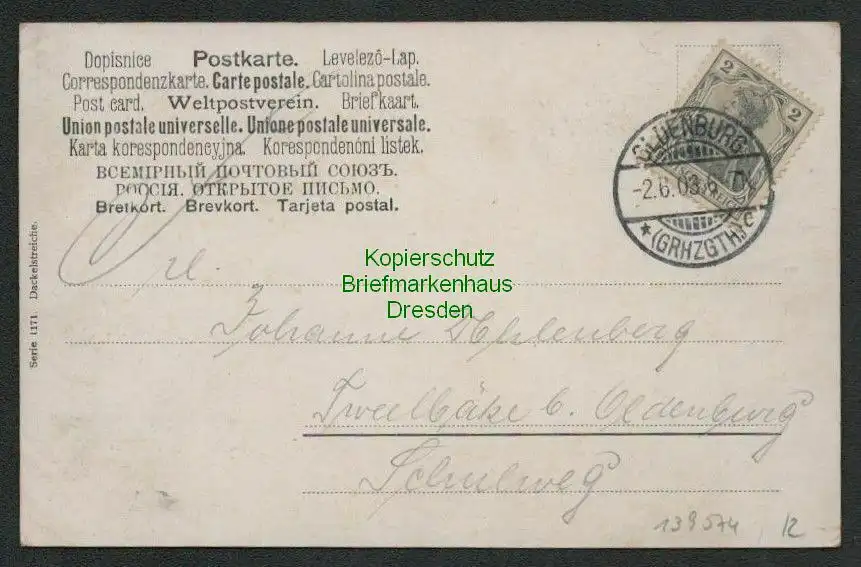 Dopisnice Postkarte. Levelező-Lap.
Correspondenzkarte. Carte postale. Cartolina postale.
Post card. Weltpostverein. Briefkaart.
Union postale universelle. Unione postale universale.
Karta korespondencyjna. Korespondenóni listek.
ВСЕМІРНЫЙ ПОЧТОВЫЙ СОЮЗЪ.
РОССІЯ. ОТКРЫТОЕ ПИСЬМО.
Brefkort. Brevkort. Tarjeta postal.
2 2
OLDENBURG
-2.6.03.
* (GRHZGTH) c
Serie 1171. Dackelstreiche.
Kopierschutz
Briefmarkenhaus
Dresden
Frl.
Johanne Ahlenberg
Tweelbäke b. Oldenburg
Schulweg
139574 12